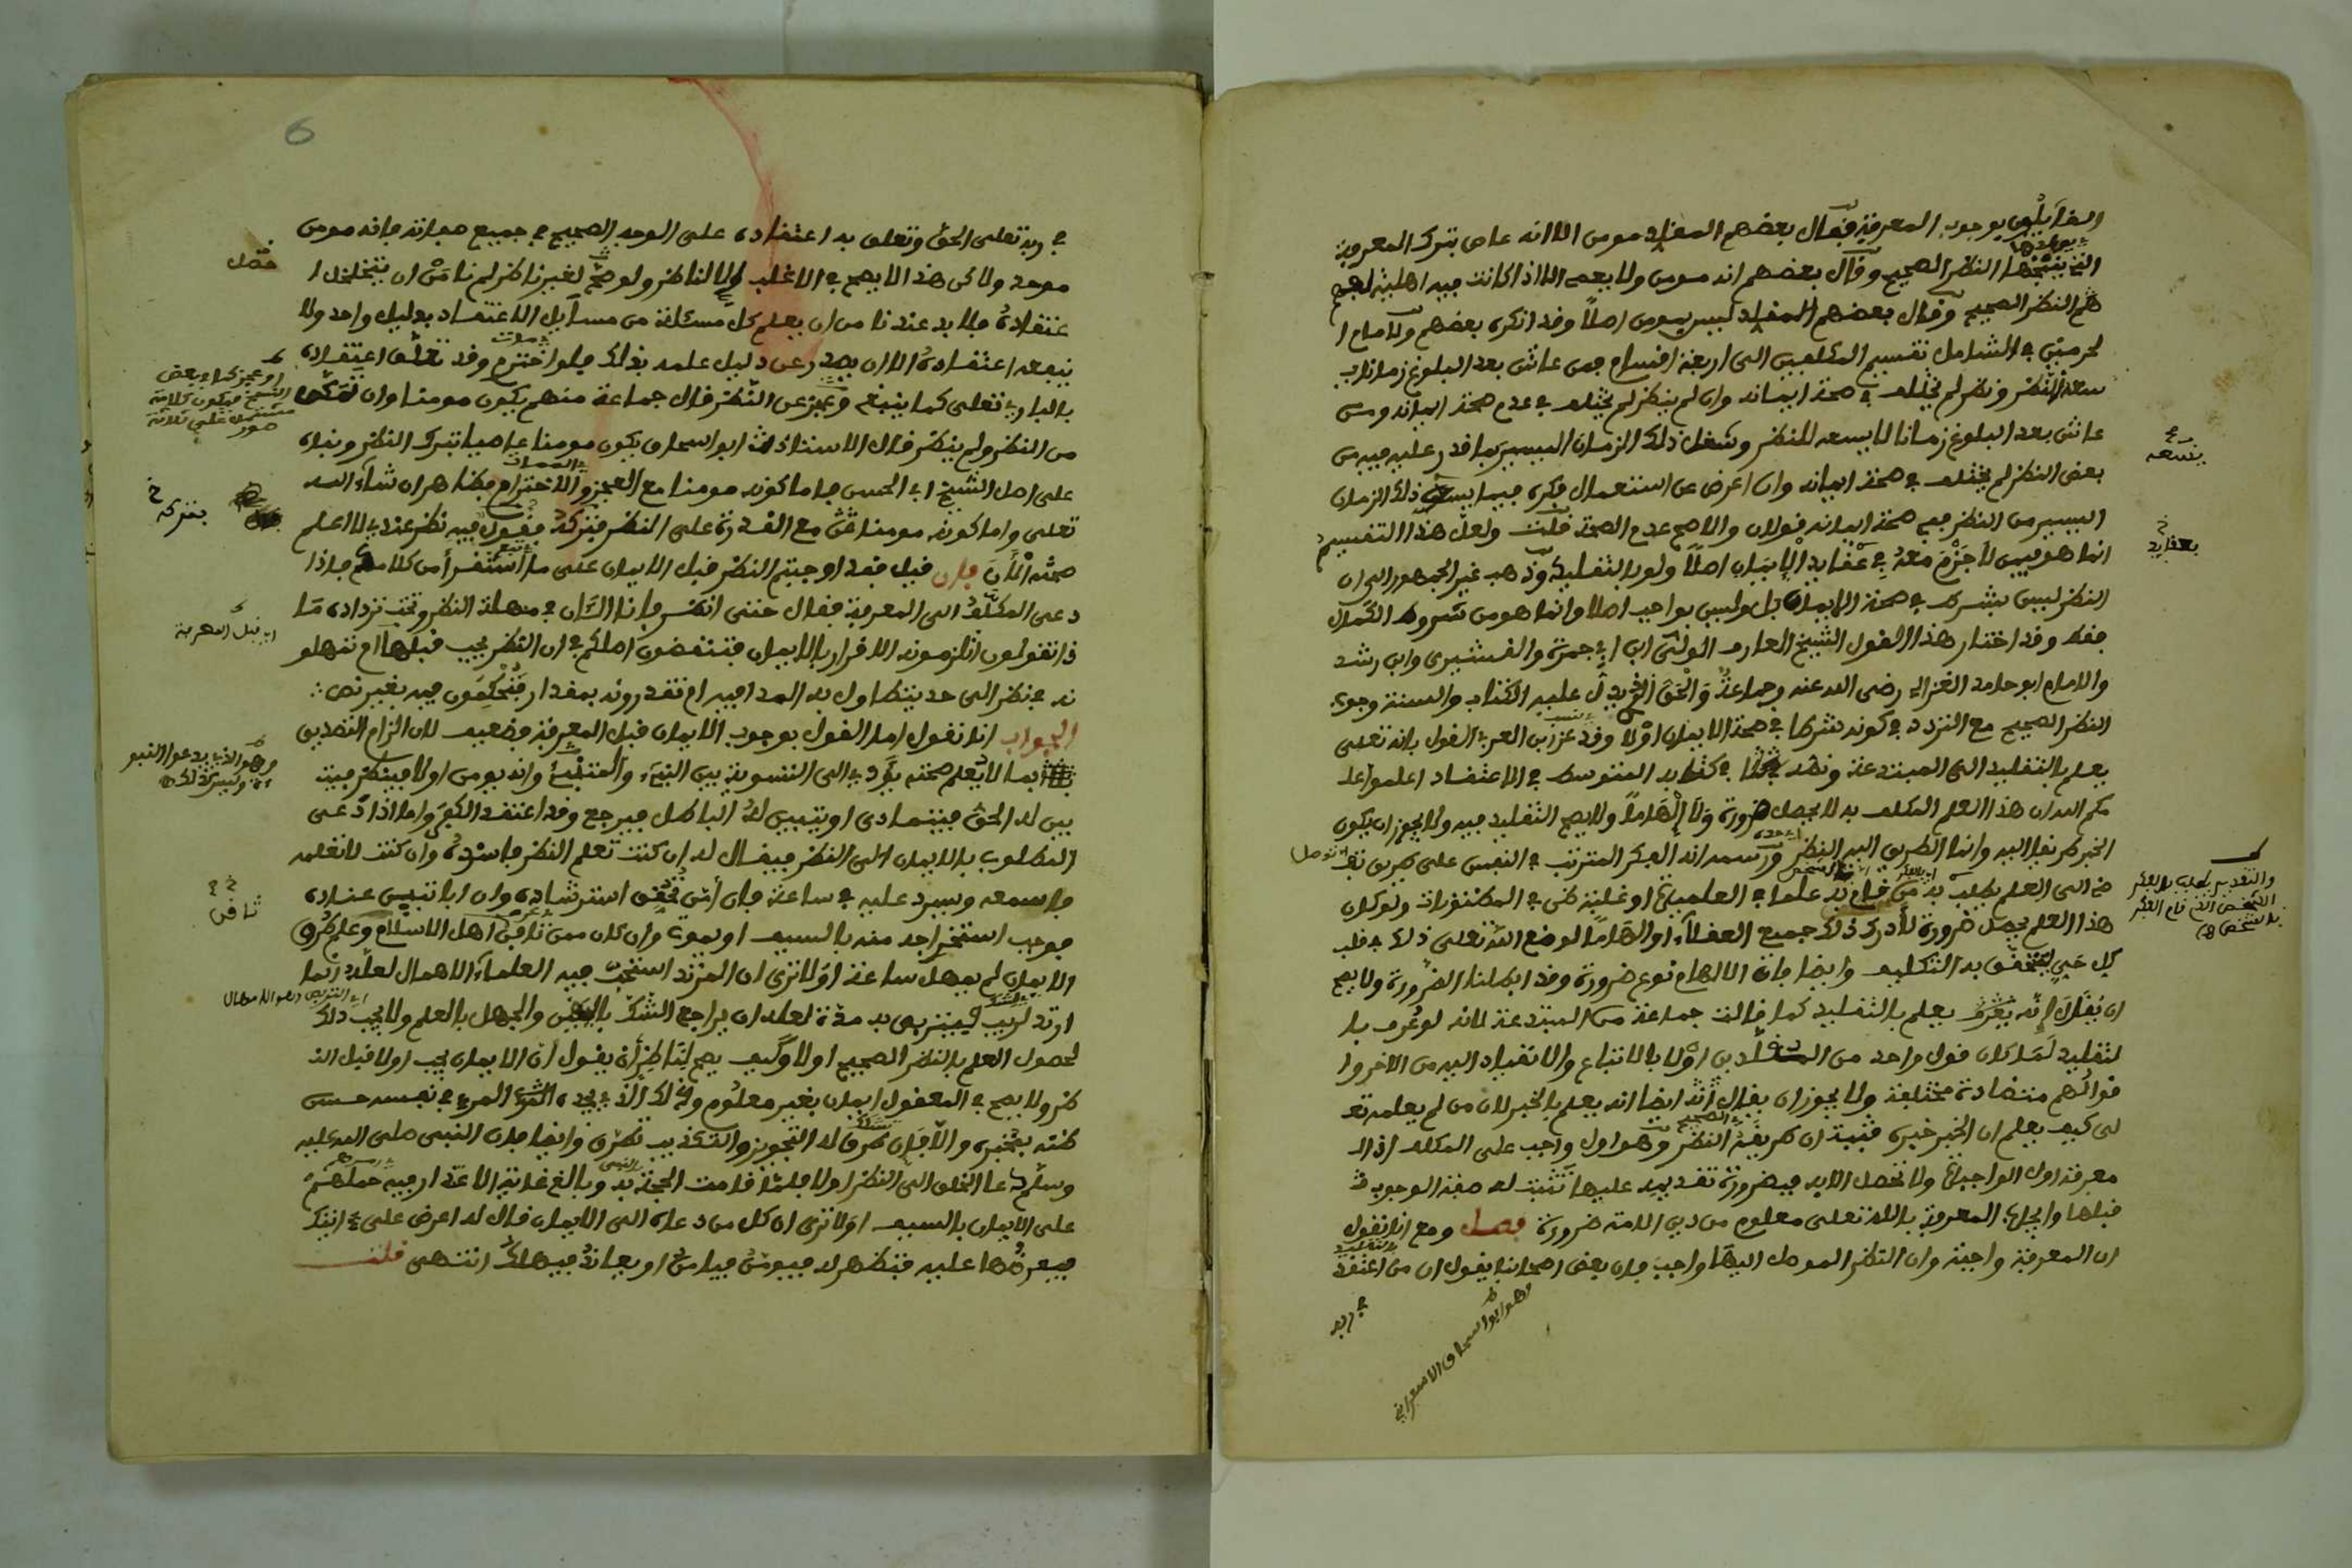 القائلون بوجوب المعرفة فقال بعضهم المقلد مومن الا انه عاص بترك المعرفة
التي ينتجها النظر الصحيح وقال بعضهم انه مومن ولا يعصى الا اذا كانت فيه اهلية لفهم
النظر الصحيح وقال بعضهم المقلد ليس بمومن اصلا وقد انكره بعضهم ولامام ا
لحرمين في الشامل تقسيم المكلفين الى اربعة اقسام فمن عاش بعد البلوغ زمانا
سعه للنظر ونظر لم يختلف في صحة ايمانه وان لم ينظر لم يختلف في عدم صحة ايمانه ومن
عاش بعد البلوغ زمانا لا يسعه للنظر وشغل ذلك الزمان اليسير بما قدر عليه فيه من
بعض النظر لم يختلف في صحة ايمانه وان اعرض عن استعمال فكره فيما يسعه ذلك الزمان
اليسير من النظر ففي صحة ايمانه قولان والاصح عدم الصحة قلت ولعل هذا التقسيم
انما هو فيمن لا جزم معه في عقايد الايمان اصلا ولو بالتقليد وذهب غير الجمهور الى ان
النظر ليس بشرط في صحة الايمان بل وليس بواجب اصلا وانما هو من شروط الكمال
فقط وقد اختار هذا القول الشيخ العارف الولي ابن ابي جمرة والقشيري وابن رشد
والامام ابو حامد الغزالي رضي الله عنه وجماعة والحق الذي يدل عليه الكتاب والسنة وجوب
النظر الصحيح مع التردد في كونه شرطا في صحة الايمان اولا وقد عزا ابن العربي القول بانه تعلى
يعلم بالتقليد الى المبتدعة ونصه في كتابه المتوسط في الاعتقاد اعلموا عل
مكم الله ان هذا العلم المكلف به لا يحصل ضرورة ولا الهاما ولا يصح التقليد فيه ولا يجوز ان يكون
الخبر طريقا اليه وانما الطريق اليه النظر ورسمه انه الفكر المترتب في النفس على طريق يفـ
ضي الى العلم يطلب به من قام به علما في العلميات او غلبة ظن في المظنونات ولو كان
هذا العلم يحصل ضرورة لادرك ذلك جميع العقلاء او الهاما لوضع الله تعلى ذلك في قلب
كل حي ليتحقق به التكليف وايضا فان الالهام نوع ضرورة وقد ابطلنا الضرورة ولا يصح
ان يقال انه يعلم بالتقليد كما قالت جماعة من المبتدعة لانه لو عرف با
لتقليد لما كان قول واحد من المقلدين اولى بالاتباع والانقياد اليه من الاخر وا
قوالهم متضادة مختلفة ولا يجوز ان يقال ايضا انه يعلم بالخبر لان من لم يعلم الله تعـ
لى كيف يعلم ان الخبر خبره فثبت ان طريقه النظر وهو اول واجب على المكلف اذ ا
لمعرفة اول الواجبات ولا تحصل الا به فبضرورة تقديمه عليها تثبت له صفة الوجوب
قبلها وايجاب المعرفة بالله تعلى معلوم من دين الامة ضرورة فصل ومع انا نقول
ان المعرفة واجبة وان النظر الموصل اليها واجب فان بعض اصحابنا يقول ان من اعتقد
في ربه
وهو ابو اسحاق الاسفراني
يسعه
بعقايد
والتقدير يطلب بالفكر
الشخص الذي قام الفكر
بالشخص
6
في ربه تعلى الحق وتعلق به اعتقاده على الوجه الصحيح في جميع صفاته فانه مومن
موحد ولاكن هذا لا يصح في الاغلب الا لناظر ولو صح لغير ناظر لم نامن ان يتخلخل ا
عتقاده فلا بد عندنا من ان يعلم كل مسئلة من مسآيل الاعتقاد بدليل واحد ولا
ينفعه اعتقاده الا ان يصدر عن دليل علمه بذلك فلو اخترم وقد تعلق اعتقاده
بالباري تعلى كما ينبغي وعجز عن النظر قال جماعة منهم يكون مومنا وان تمكن
من النظر ولم ينظر قال الاستاذ ابو اسحاق يكون مومنا عاصيا بترك النظر وبناه
على اصل الشيخ ابي الحسن فاما كونه مومنا مع العجز والاخترام فظاهر ان شاء الله
تعلى واما كونه مومنا مع القدرة على النظر فتركه فقول فيه نظر عندي لا اعلم
صحته الان فان قيل فقد اوجبتم النظر قبل الايمان على ما استقر من كلامكم فاذا
دعي المكلف الى المعرفة فقال حتى انظر فانا الان في مهلة النظر وتحت ترداده ما
ذا تقولون اتلزمونه الاقرار بالايمان فتنقضون اصلكم في ان النظر يجب قبله ام تمهلو
نه في نظر الى حد يتطاول به المدا فيه ام تقدرونه بمقدار فتحكمون فيه بغير نص
الجواب انا نقول اما القول بوجوب الايمان قبل المعرفة فضعيف لان الزام التصديق
بما لا يعلم صحته يؤدي الى التسوية بين النبيء والمتنبي وانه يومن اولا فينظر فيتـ
بين له الحق فيتمادى او يتبين له الباطل فيرجع وقد اعتقد الكفر واما اذا دعي
المطلوب بالايمان الى النظر فيقال له ان كنت تعلم النظر فاسرده وان كنت لا تعلمه
فاسمعه ويسرد عليه في ساعة فان امن تحقق استرشاده وان ابا تبين عناده
فوجب استخراجه منه بالسيف او يموت وان كان ممن ثافن اهل الاسلام وعلم طرق
الايمان لم يمهل ساعة اولا ترى ان المرتد استحب فيه العلماء الامهال لعله انما
ارتد لريب فيتربص به مدة لعله ان يراجع الشك باليقين والجهل بالعلم ولا يجب ذلك
لحصول العلم بالنظر الصحيح اولا وكيف يصح لناظر ان يقول ان الايمان يجب اولا قبل النـ
ظر ولا يصح في المعقول ايمان بغير معلوم وذلك الذي يجده المرء في نفسه حسن
ظنه بمخبره والا فان طرق له التجويز والتكذيب تطرق وايضا فان النبي صلى الله عليه
وسلم دعا الخلق الى النظر اولا فلما قامت الحجة به وبالغ غاية الاعذار فيه حملهم
على الايمان بالسيف اولا ترى ان كل من دعاه الى الايمان قال له اعرض علي ايتك
فيعرضها عليه فيظهر له فيومن فيامن او يعاند فيهلك انتهى قلت
فصل
او عجز كما في بعض
النسخ فيكون كلامه
صور
بتركه خ
اي قبل المعرفة
وهو الذي يدعو النبو
ءة وليس كذلك
ثافن